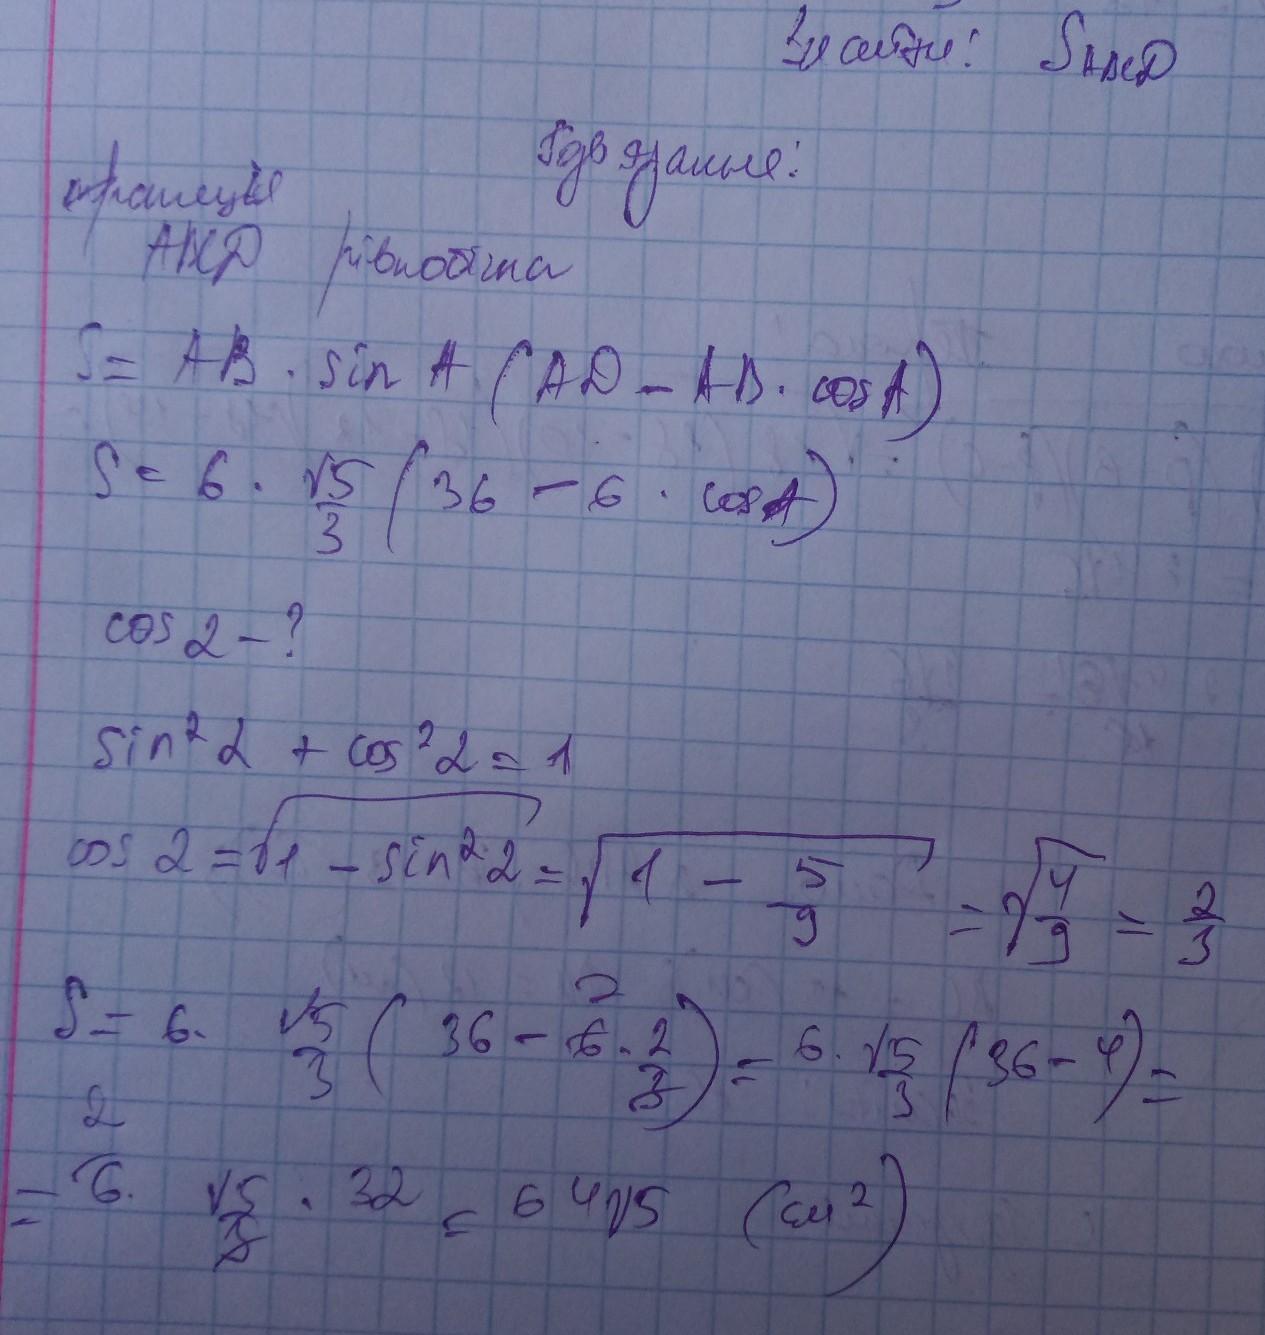 Знайти: SABCD
Розв'язання:
трапеція
ABCD рівнобічна
S = AB · sin A (AD - AB · cos A)
S = 6 · √5/3 (36 - 6 · cos A)
cos 2 - ?
sin² 2 + cos² 2 = 1
cos 2 = √(1 - sin² 2) = √(1 - 5/9) = √(4/9) = 2/3
S = 6 · √5/3 (36 - 6 · 2/3) = 6 · √5/3 (36 - 4) =
= 6 · √5/3 · 32 = 64√5 (см²)